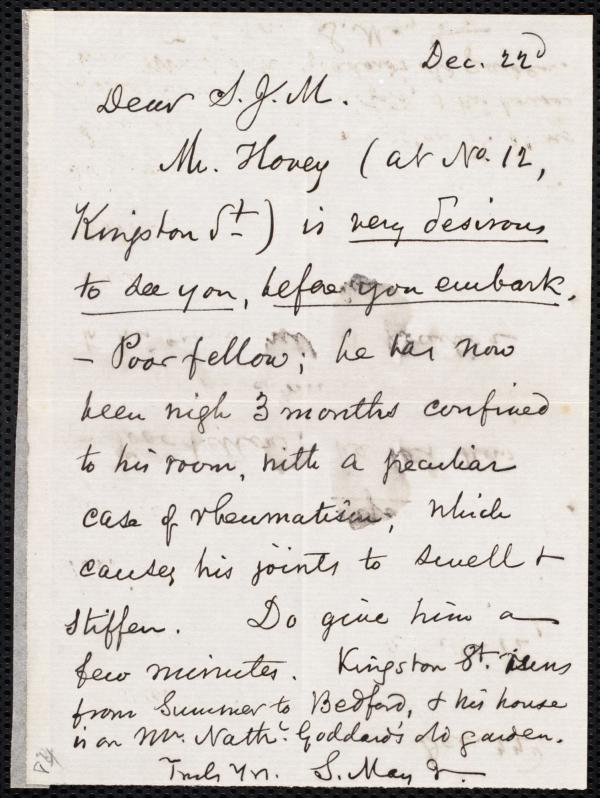 Dec. 22d
Dear S. J. M.
Mr. Hovey (at No. 12,
Kingston St) is very desirous
to see you, before you embark.
- Poor fellow; he has now
been nigh 3 months confined
to his room, with a peculiar
case of rheumatism, which
causes his joints to swell &
stiffen. Do give him a
few minutes. Kingston St. runs
from Summer to Bedford, & his house
is on Mr. Nathl. Goddard's old garden.
Truly Yrs. S. May Jr.